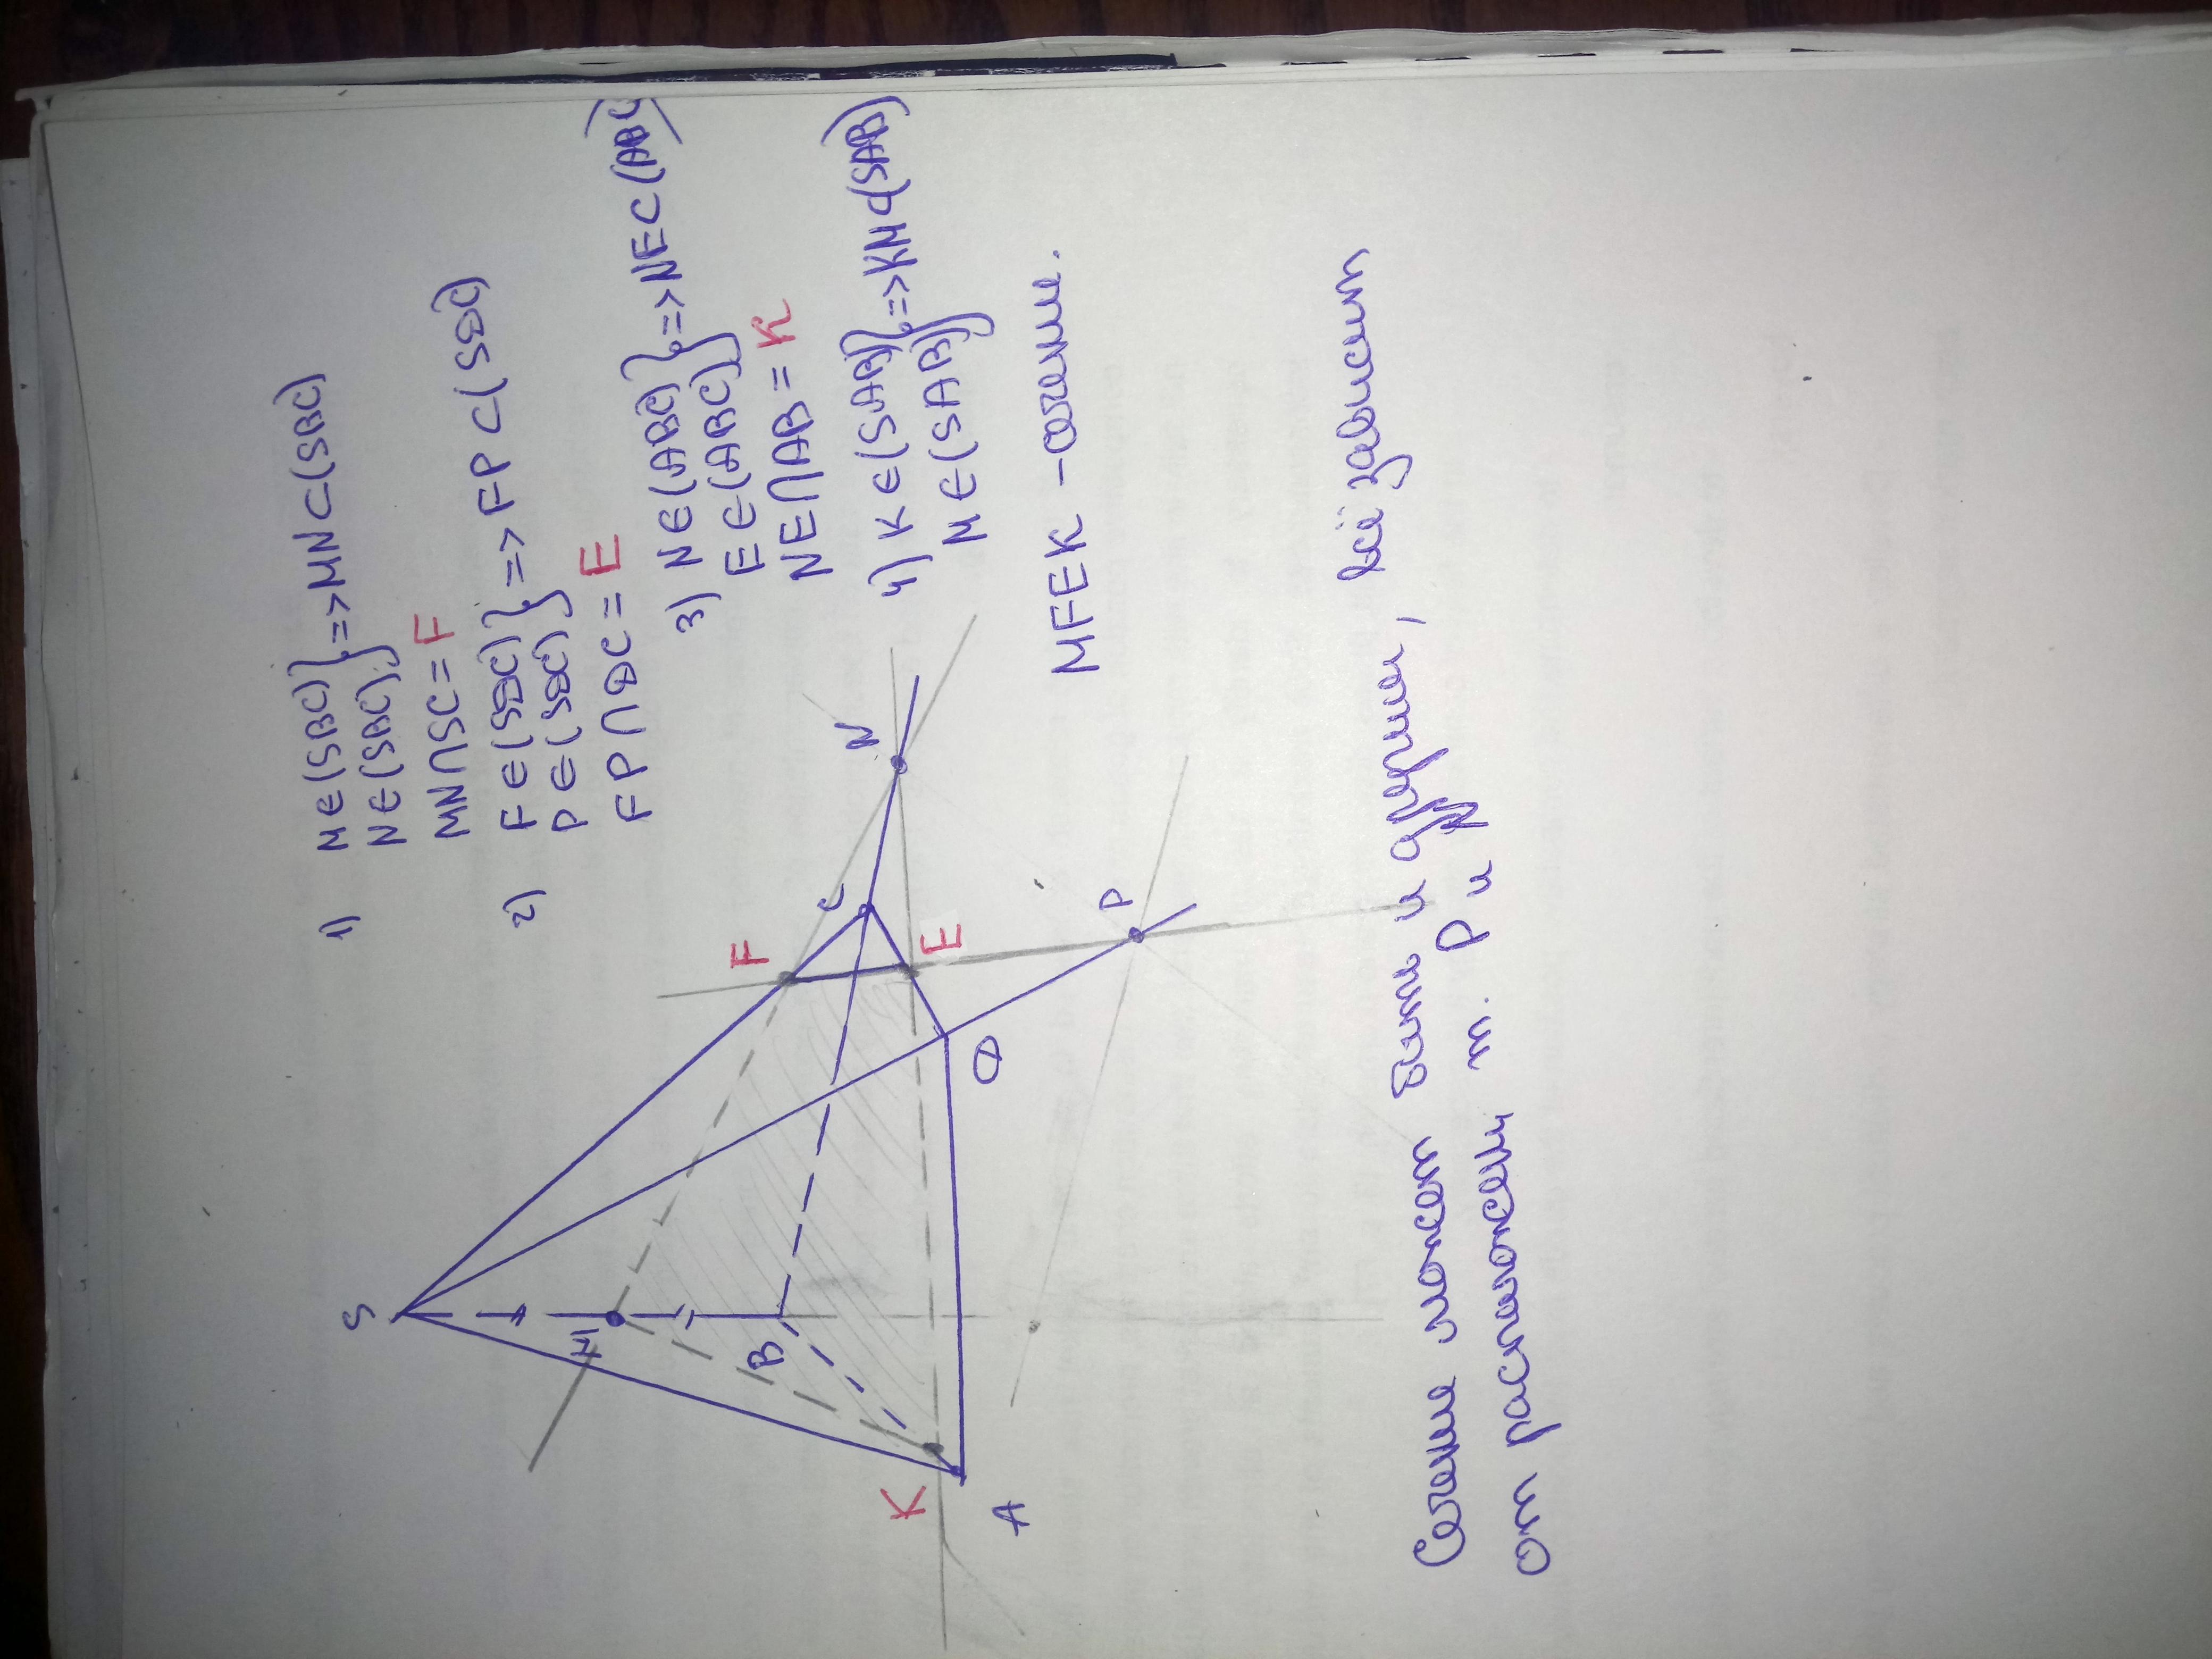 1) M∈(SBC)
N∈(SBC) } => MN⊂(SBC)
MN∩SC = F
2) F∈(SDC)
P∈(SDC) } => FP⊂(SDC)
FP∩DC = E
3) N∈(ABC)
E∈(ABC) } => NE⊂(ABC)
NE∩AB = K
4) K∈(SAB)
M∈(SAB) } => KM⊂(SAB)
MFEK - сечение.
S
M
B
K
A
F
C
E
D
N
P
Сечение может быть и другим, всё зависит
от расположения т. P и N